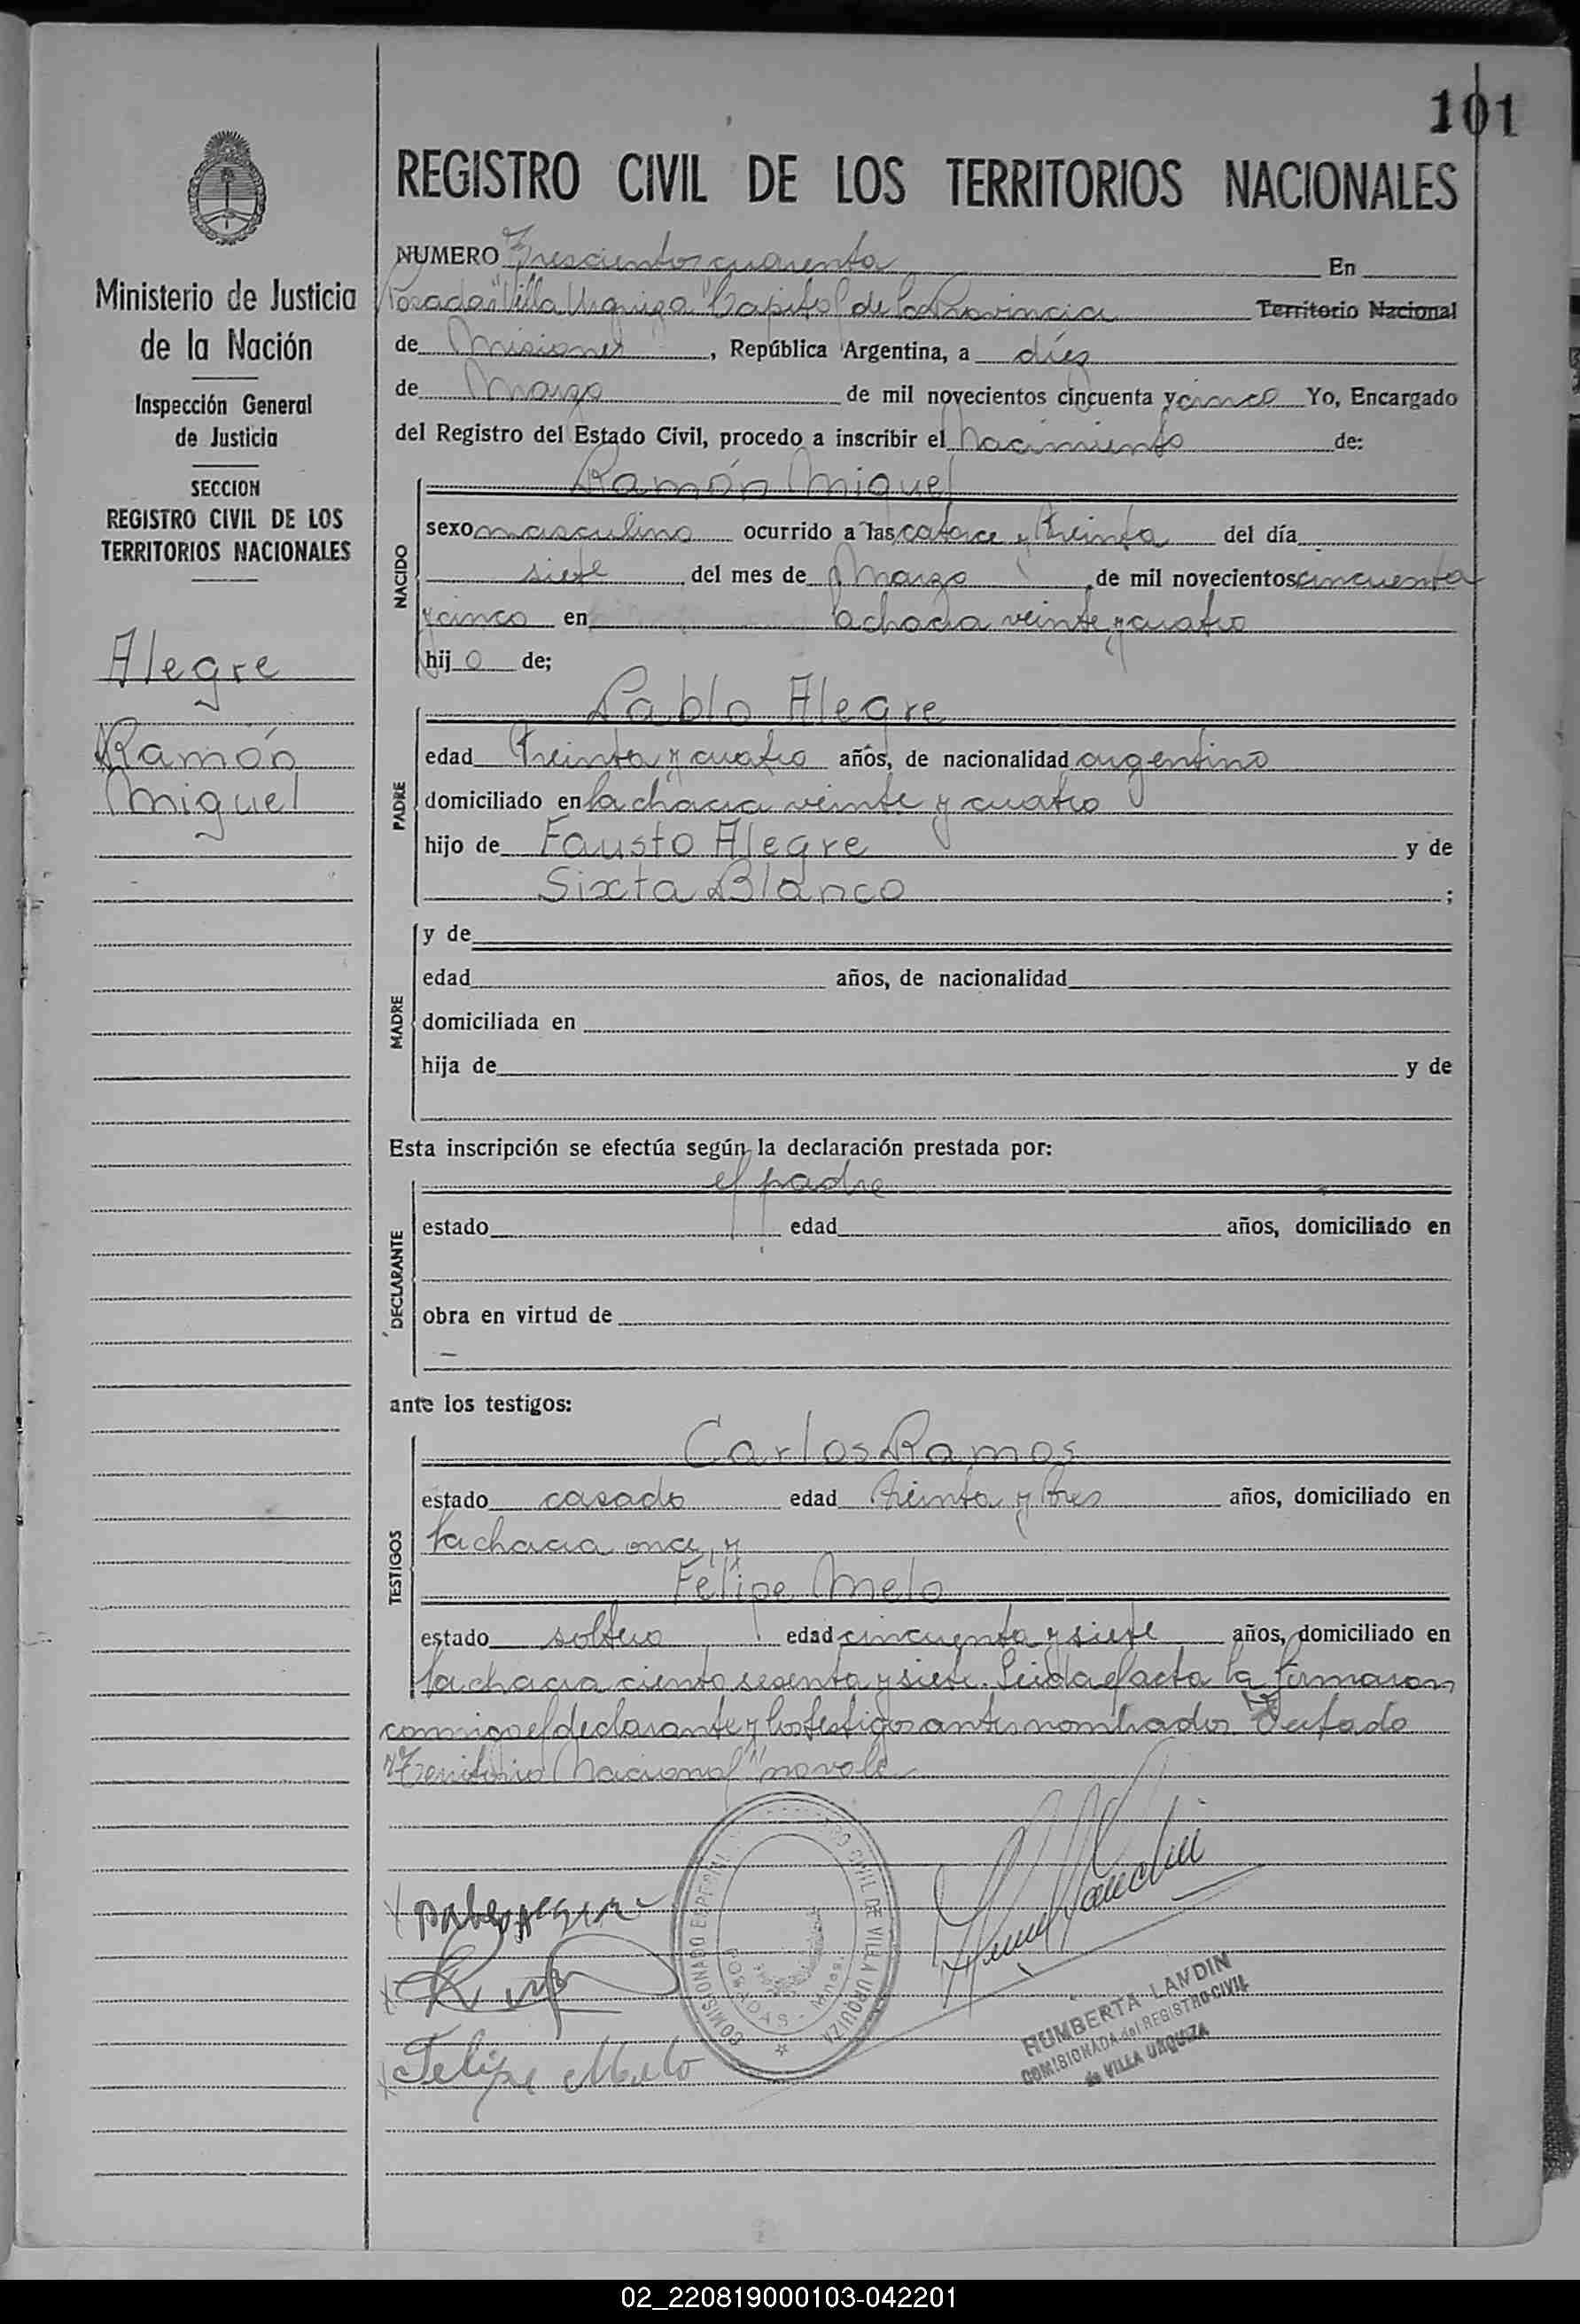 101
REGISTRO CIVIL DE LOS TERRITORIOS NACIONALES
Ministerio de Justicia
de la Nación
Inspección General
de Justicia
SECCION
REGISTRO CIVIL DE LOS
TERRITORIOS NACIONALES
Alegre
Ramón
Miguel
NUMERO Trescientos cuarenta En
Posadas "Villa Urquiza" Capital de la Provincia Territorio Nacional
de Misiones, República Argentina, a diez
de Marzo de mil novecientos cincuenta y cinco Yo, Encargado
del Registro del Estado Civil, procedo a inscribir el Nacimiento de:
NACIDO
Ramón Miguel
sexo masculino ocurrido a las catorce y treinta del día
siete del mes de Marzo de mil novecientos cincuenta
y cinco en la chacra veinte y cuatro
hijo de;
PADRE
Pablo Alegre
edad Treinta y cuatro años, de nacionalidad argentino
domiciliado en la chacra veinte y cuatro
hijo de Fausto Alegre y de
Sixta Blanco ;
MADRE
y de
edad años, de nacionalidad
domiciliada en
hija de y de
Esta inscripción se efectúa según la declaración prestada por:
DECLARANTE
el padre
estado edad años, domiciliado en
obra en virtud de
ante los testigos:
TESTIGOS
Carlos Ramos
estado casado edad treinta y tres años, domiciliado en
la chacra once, y
Felipe Melo
estado soltero edad cincuenta y siete años, domiciliado en
la chacra ciento sesenta y siete. Leida el acta la firmaron
conmigo el declarante y los testigos antes nombrados. Testado
"Territorio Nacional" no vale
Pablo Alegre
Felipe Melo
COMISIONADO ESPECIAL CIVIL DE VILLA URQUIZA
POSADAS - Mnes.
HUMBERTA LANDIN
COMISIONADA del REGISTRO CIVIL
de VILLA URQUIZA
02_220819000103-042201